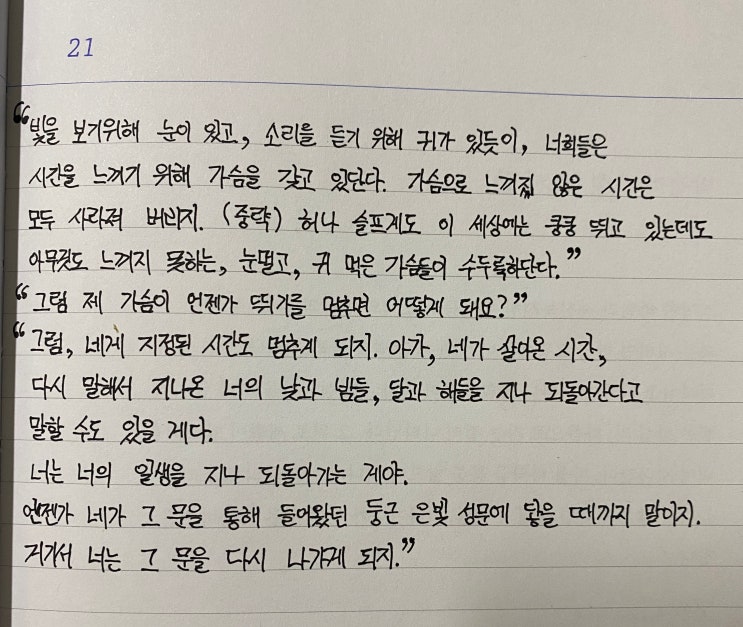 21
“빛을 보기위해 눈이 있고, 소리를 듣기 위해 귀가 있듯이, 너희들은
시간을 느끼기 위해 가슴을 갖고 있단다. 가슴으로 느껴질 않은 시간은
모두 사라져 버리지. (중략) 허나 슬프게도 이 세상에는 쿵쿵 뛰고 있는데도
아무것도 느끼지 못하는, 눈멀고, 귀 먹은 가슴들이 수두룩하단다.”
“그럼 제 가슴이 언젠가 뛰기를 멈추면 어떻게 돼요?”
“그럼, 네게 지정된 시간도 멈추게 되지. 아가, 네가 살아온 시간,
다시 말해서 지나온 너의 낮과 밤들, 달과 해들을 지나 되돌아간다고
말할 수도 있을 게다.
너는 너의 일생을 지나 되돌아가는 게야.
언젠가 네가 그 문을 통해 들어왔던 둥근 은빛 성문에 닿을 때까지 말이지.
거기서 너는 그 문을 다시 나가게 되지.”